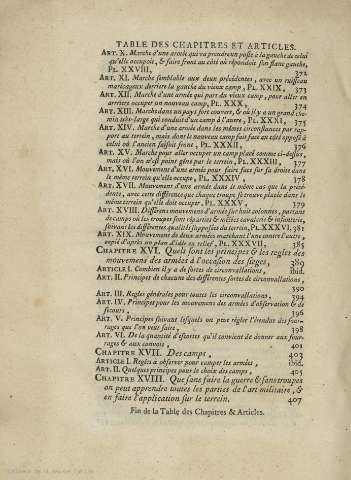 TABLE DES CHAPITRES ET ARTICLES.
ART. X. Marche d'une armée qui va prendre un poste à la gauche de celui
qu'elle occupoit, & faire front au côté où répondoit son flanc gauche,
PL. XXVIII, 372
ART. XI. Marche semblable aux deux précédentes, avec un ruisseau
marécageux derriere la gauche du vieux camp, PL. XXIX, 373
ART. XII. Marche d'une armée qui part du vieux camp, pour aller en
arriere occuper un nouveau camp, PL. XXX, 374
ART. XIII. Marche dans un pays fort couvert, & où il y a un grand che-
min très-large qui conduit d'un camp à l'autre, PL. XXXI, 375
ART. XIV. Marche d'une armée dans les mêmes circonstances par rap-
port au terrein, mais dont le nouveau camp fait face au côté opposé à
celui où l'ancien faisoit front, PL. XXXII, 376
ART. XV. Marche pour aller occuper un camp placé comme ci-dessus,
mais où l'on n'est point gêné par le terrein, PL. XXXIII, 377
ART. XVI. Mouvement d'une armée pour faire face sur sa droite dans
le même terrein qu'elle occupe, PL. XXXIV, 378
ART. XVII. Mouvement d'une armée dans le même cas que la précé-
dente, avec cette différence que chaque troupe se trouve placée dans le
même terrein qu'elle doit occuper, PL. XXXV, 379
ART. XVIII. Différens mouvemens d'armée sur huit colonnes, partant
de camps où les troupes sont réparties & mêlées cavalerie & infanterie,
suivant les différentes qualités supposées du terrein, PL. XXXVI, 381
ART. XIX. Mouvement de deux armées marchant l'une contre l'autre,
copié d'après un plan d'idée en relief, PL. XXXVII, 385
CHAPITRE XVI. Quels sont les principes & les regles des
mouvemens des armées à l'occasion des sieges, 389
ARTICLE I. Combien il y a de sortes de circonvallations, ibid.
ART. II. Principes de chacune des différentes sortes de circonvallations,
390
ART. III. Regles générales pour toutes les circonvallations, 394
ART. IV. Principes pour les mouvemens des armées d'observation & de
secours, 396
ART. V. Principes suivant lesquels on peut régler l'étendue des four-
rages que l'on veut faire, 398
ART. VI. De la quantité d'escortes qu'il convient de donner aux four-
rages & aux convois, 401
CHAPITRE XVII. Des camps, 403
ARTICLE I. Regles à observer pour camper les armées, ibid.
ART. II. Quelques principes pour le choix des camps, 405
CHAPITRE XVIII. Que sans faire la guerre & sans troupes
on peut apprendre toutes les parties de l'art militaire, &
en faire l'application sur le terrein. 407
Fin de la Table des Chapitres & Articles.